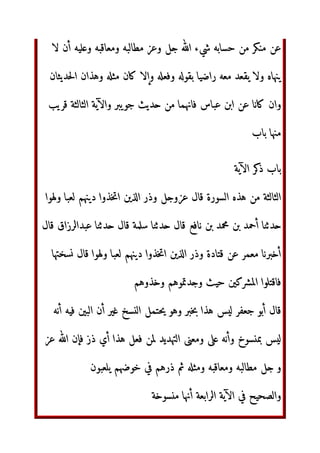 عن منكر من حسابه شيء الله جل وعز مطالبه ومعاقبه وعليه أن لا
ينهاه ولا يقعد معه راضيا بقوله وفعله وإلا كان مثله وهذان الحديثان
وان كانا عن ابن عباس فانهما من حديث جويبر والآية الثالثة قريب
منها باب
باب ذكر الآية
الثالثة من هذه السورة قال عزوجل وذر الذين اتخذوا دينهم لعبا ولهوا
حدثنا أحمد بن محمد بن نافع قال حدثنا سلمة قال حدثنا عبدالرزاق قال
أخبرنا معمر عن قتادة وذر الذين اتخذوا دينهم لعبا ولهوا قال نسختها
فاقتلوا المشركين حيث وجدتموهم وخذوهم
قال أبو جعفر ليس هذا بخبر وهو يحتمل النسخ غير أن البين فيه أنه
ليس بمنسوخ وأنه على ومعنى التهديد لمن فعل هذا أي ذر فإن الله عز
و جل مطالبه ومعاقبه ومثله ثم ذرهم في خوضهم يلعبون
والصحيح في الآية الرابعة أنها منسوخة